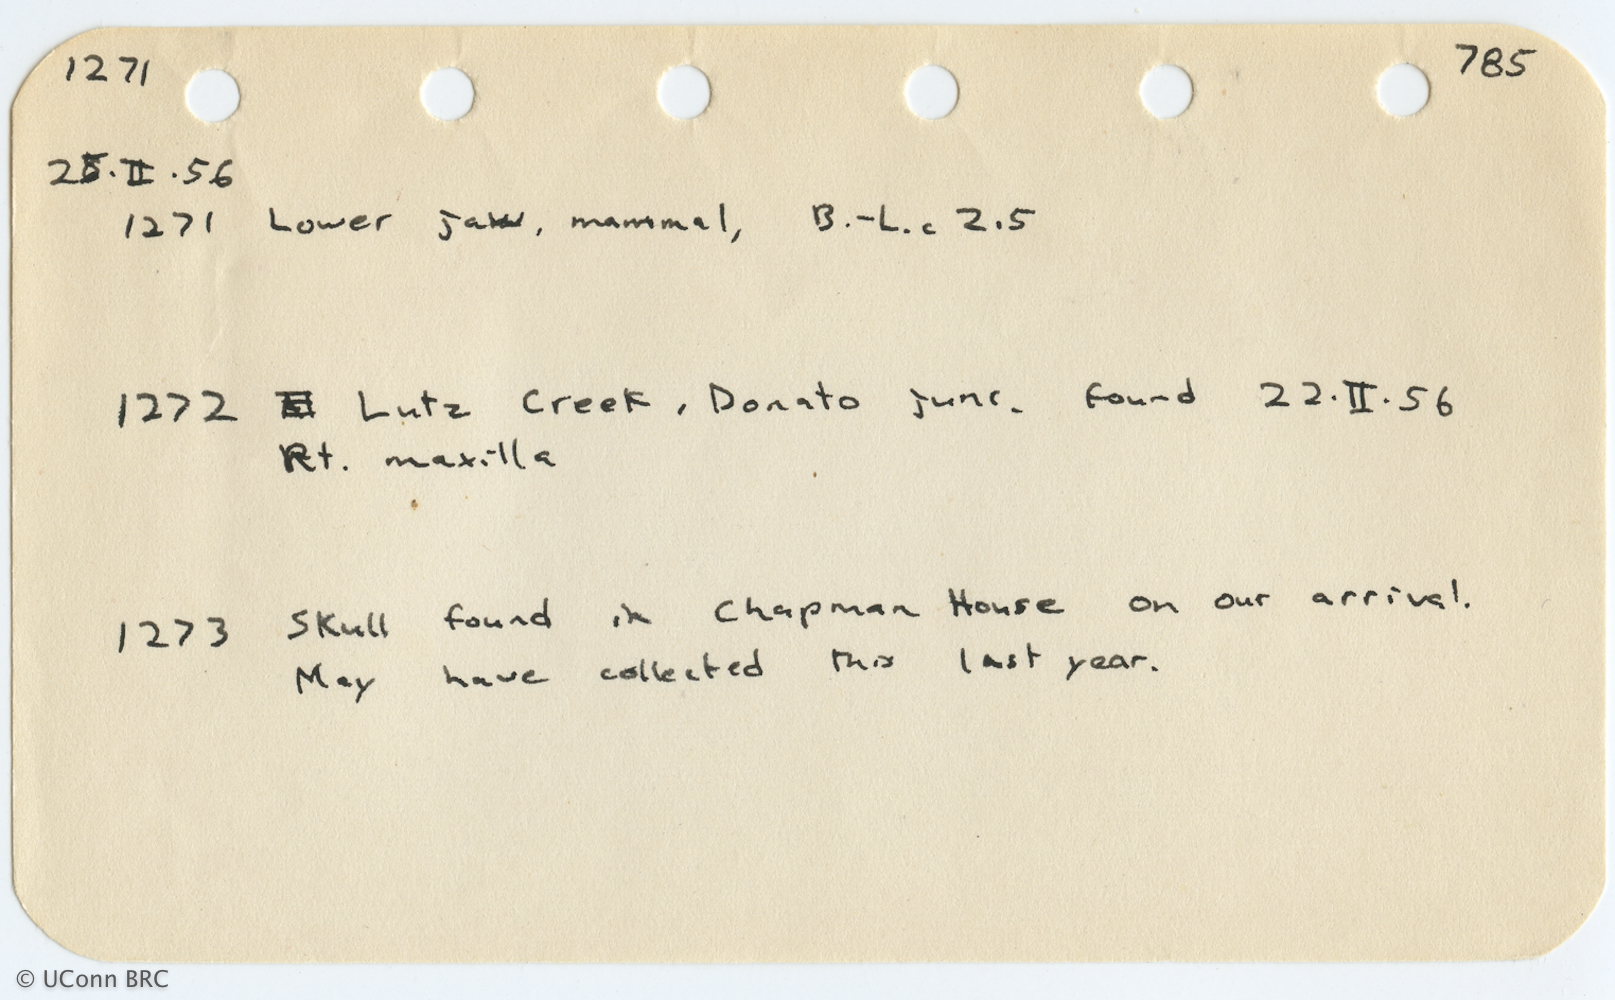 1271 785
25.II.56
1271 Lower jaw, mammal, B.-L.c 2.5
1272 Lutz Creek, Donato junc. found 22.II.56
Rt. maxilla
1273 Skull found in Chapman House on our arrival.
May have collected this last year.
© UConn BRC